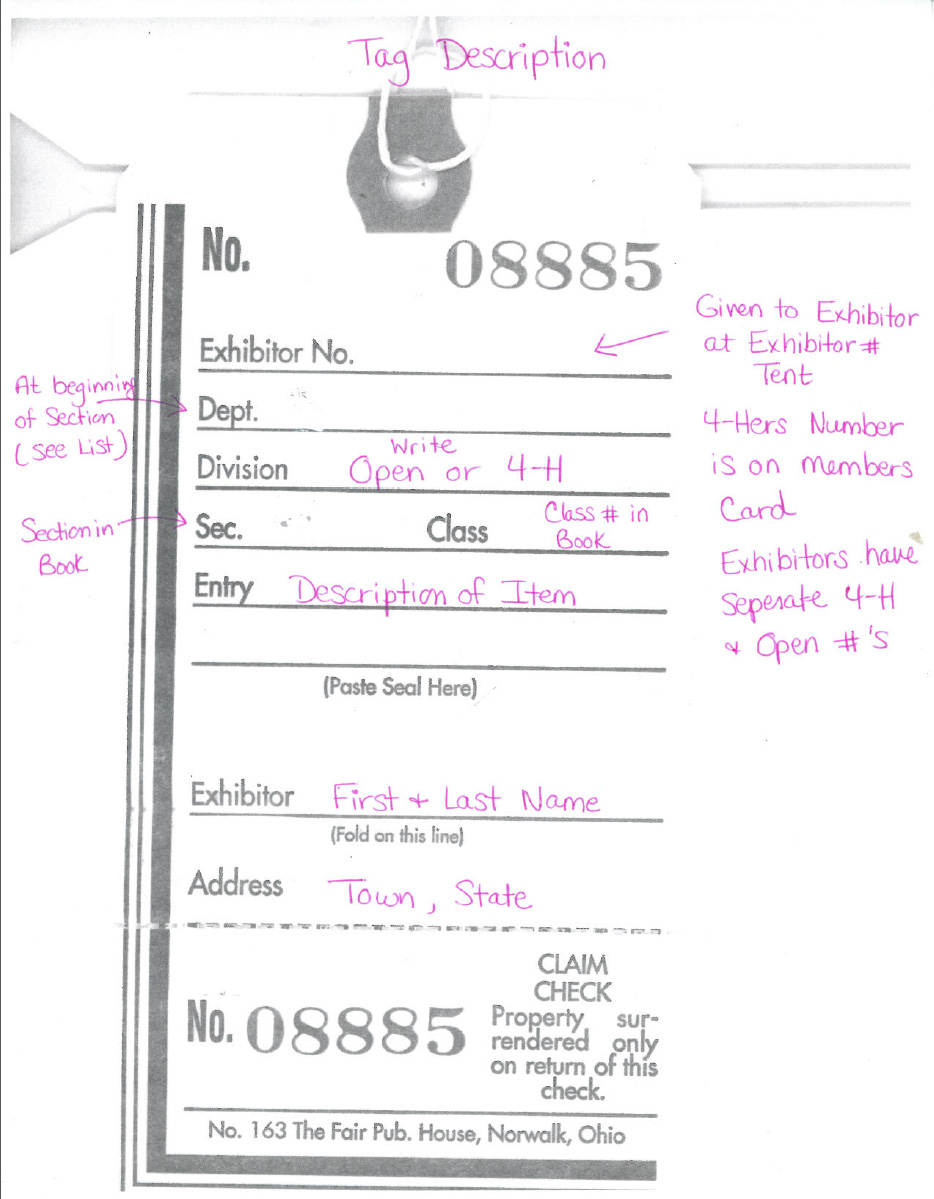 Tag Description
No. 08885
Given to Exhibitor
at Exhibitor #
Tent
Exhibitor No.
At beginning
of Section
(see List)
Dept.
4-Hers Number
is on members
Card
Write
Division Open or 4-H
Section in
Book
Sec. Class Class # in
Book
Exhibitors have
Seperate 4-H
& Open #'s
Entry Description of Item
(Paste Seal Here)
Exhibitor First & Last Name
(Fold on this line)
Address Town, State
No. 08885
CLAIM
CHECK
Property sur-
rendered only
on return of this
check.
No. 163 The Fair Pub. House, Norwalk, Ohio